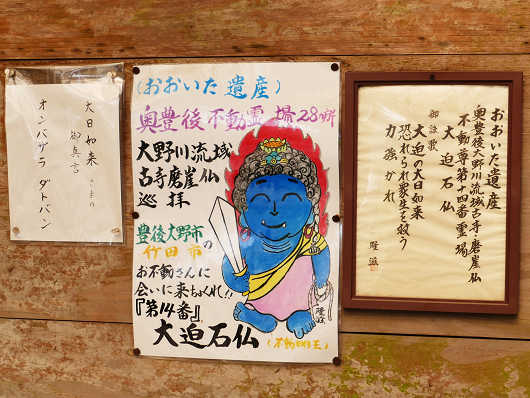 大日如来さまの
御真言
オンバザラ ダトバン
(おおいた遺産)
奥豊後不動霊場28ヶ所
大野川流域
古寺磨崖仏
巡拝
豊後大野市
竹田市の
お不動さんに
会いに来ちょくれ!!
『第14番』
大迫石仏
(不動明王)
おおいた遺産
奥豊後大野川流域古寺磨崖仏
不動尊第十四番霊場
大迫石仏
御詠歌
大迫の大日如来
恐れられ衆生を救う
力強かれ